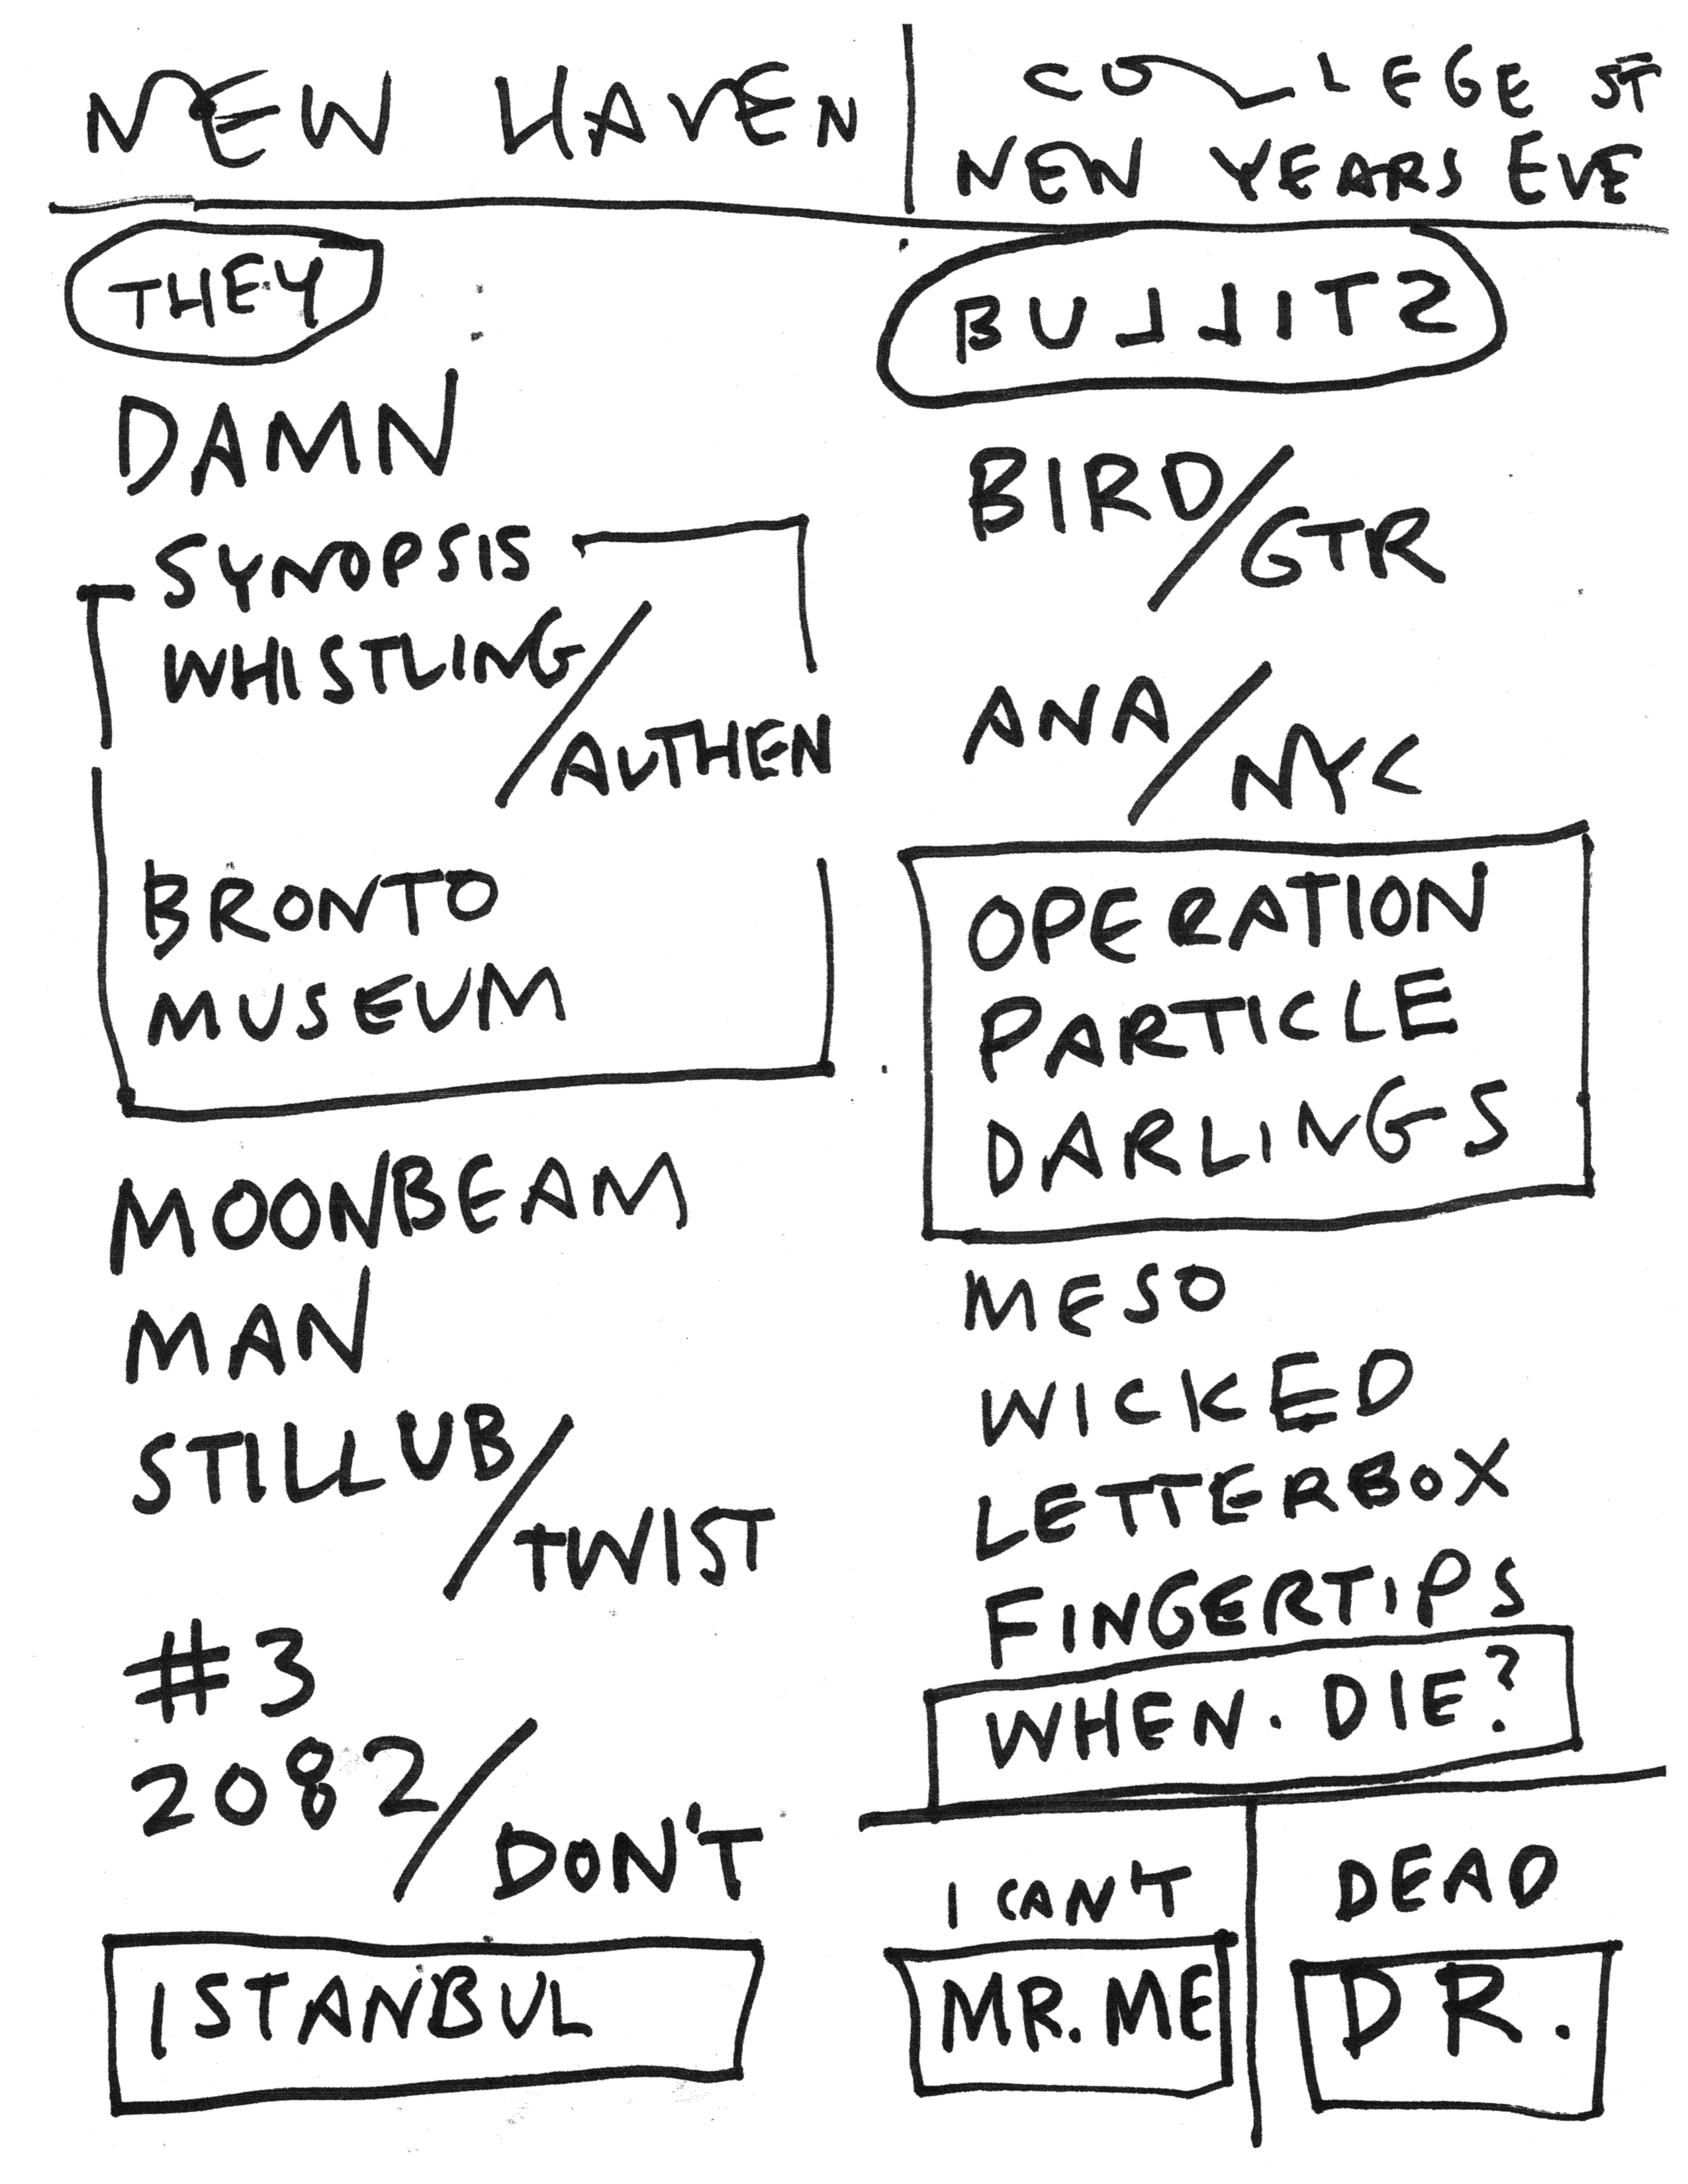 NEW HAVEN
COLLEGE ST
NEW YEARS EVE
THEY
DAMN
SYNOPSIS
WHISTLING/AUTHEN
BRONTO
MUSEUM
MOONBEAM
MAN
STILLUB/TWIST
#3
2082/DON'T
ISTANBUL
BULLITS
BIRD/GTR
ANA/NYC
OPERATION
PARTICLE
DARLINGS
MESO
WICKED
LETTERBOX
FINGERTIPS
WHEN. DIE?
I CAN'T
MR. ME
DEAD
DR.